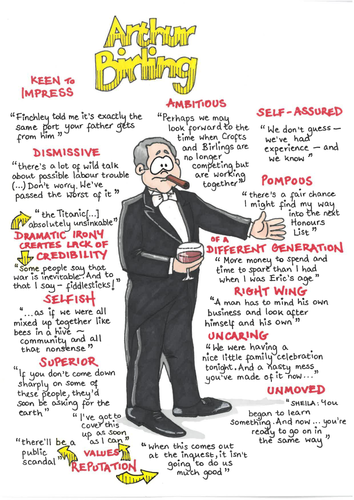 Arthur
Birling
KEEN TO
IMPRESS
"Finchley told me it's exactly the
same port your father gets
from him"
DISMISSIVE
"there's a lot of wild talk
about possible labour trouble
(...) Don't worry. We've
passed the worst of it"
"the Titanic[...]
absolutely unsinkable"
DRAMATIC IRONY
CREATES LACK OF
CREDIBILITY
"Some people say that
war is inevitable. And to
that I say – fiddlesticks!"
SELFISH
"...as if we were all
mixed up together like
bees in a hive –
community and all
that nonsense"
SUPERIOR
"If you don't come down
sharply on some of
these people, they'd
soon be asking for the
earth"
"I've got to
cover this
up as soon
as I can"
"there'll be a
public
scandal"
VALUES
REPUTATION
"When this comes out
at the inquest, it isn't
going to do us
much good"
AMBITIOUS
"Perhaps we may
look forward to the
time when Crofts
and Birlings are
no longer
competing but are
working
together"
SELF-ASSURED
"We don't guess –
we've had
experience – and
we know"
POMPOUS
"there's a fair chance
I might find my way
into the next
Honours
List"
OF A
DIFFERENT GENERATION
"More money to spend and
time to spare than I had
when I was Eric's age"
RIGHT WING
"A man has to mind his own
business and look after
himself and his own"
UNCARING
"We were having a
nice little family celebration
tonight. And a nasty mess
you've made of it now..."
UNMOVED
"SHEILA: You
began to learn
something. And now... you're
ready to go on in
the same way"